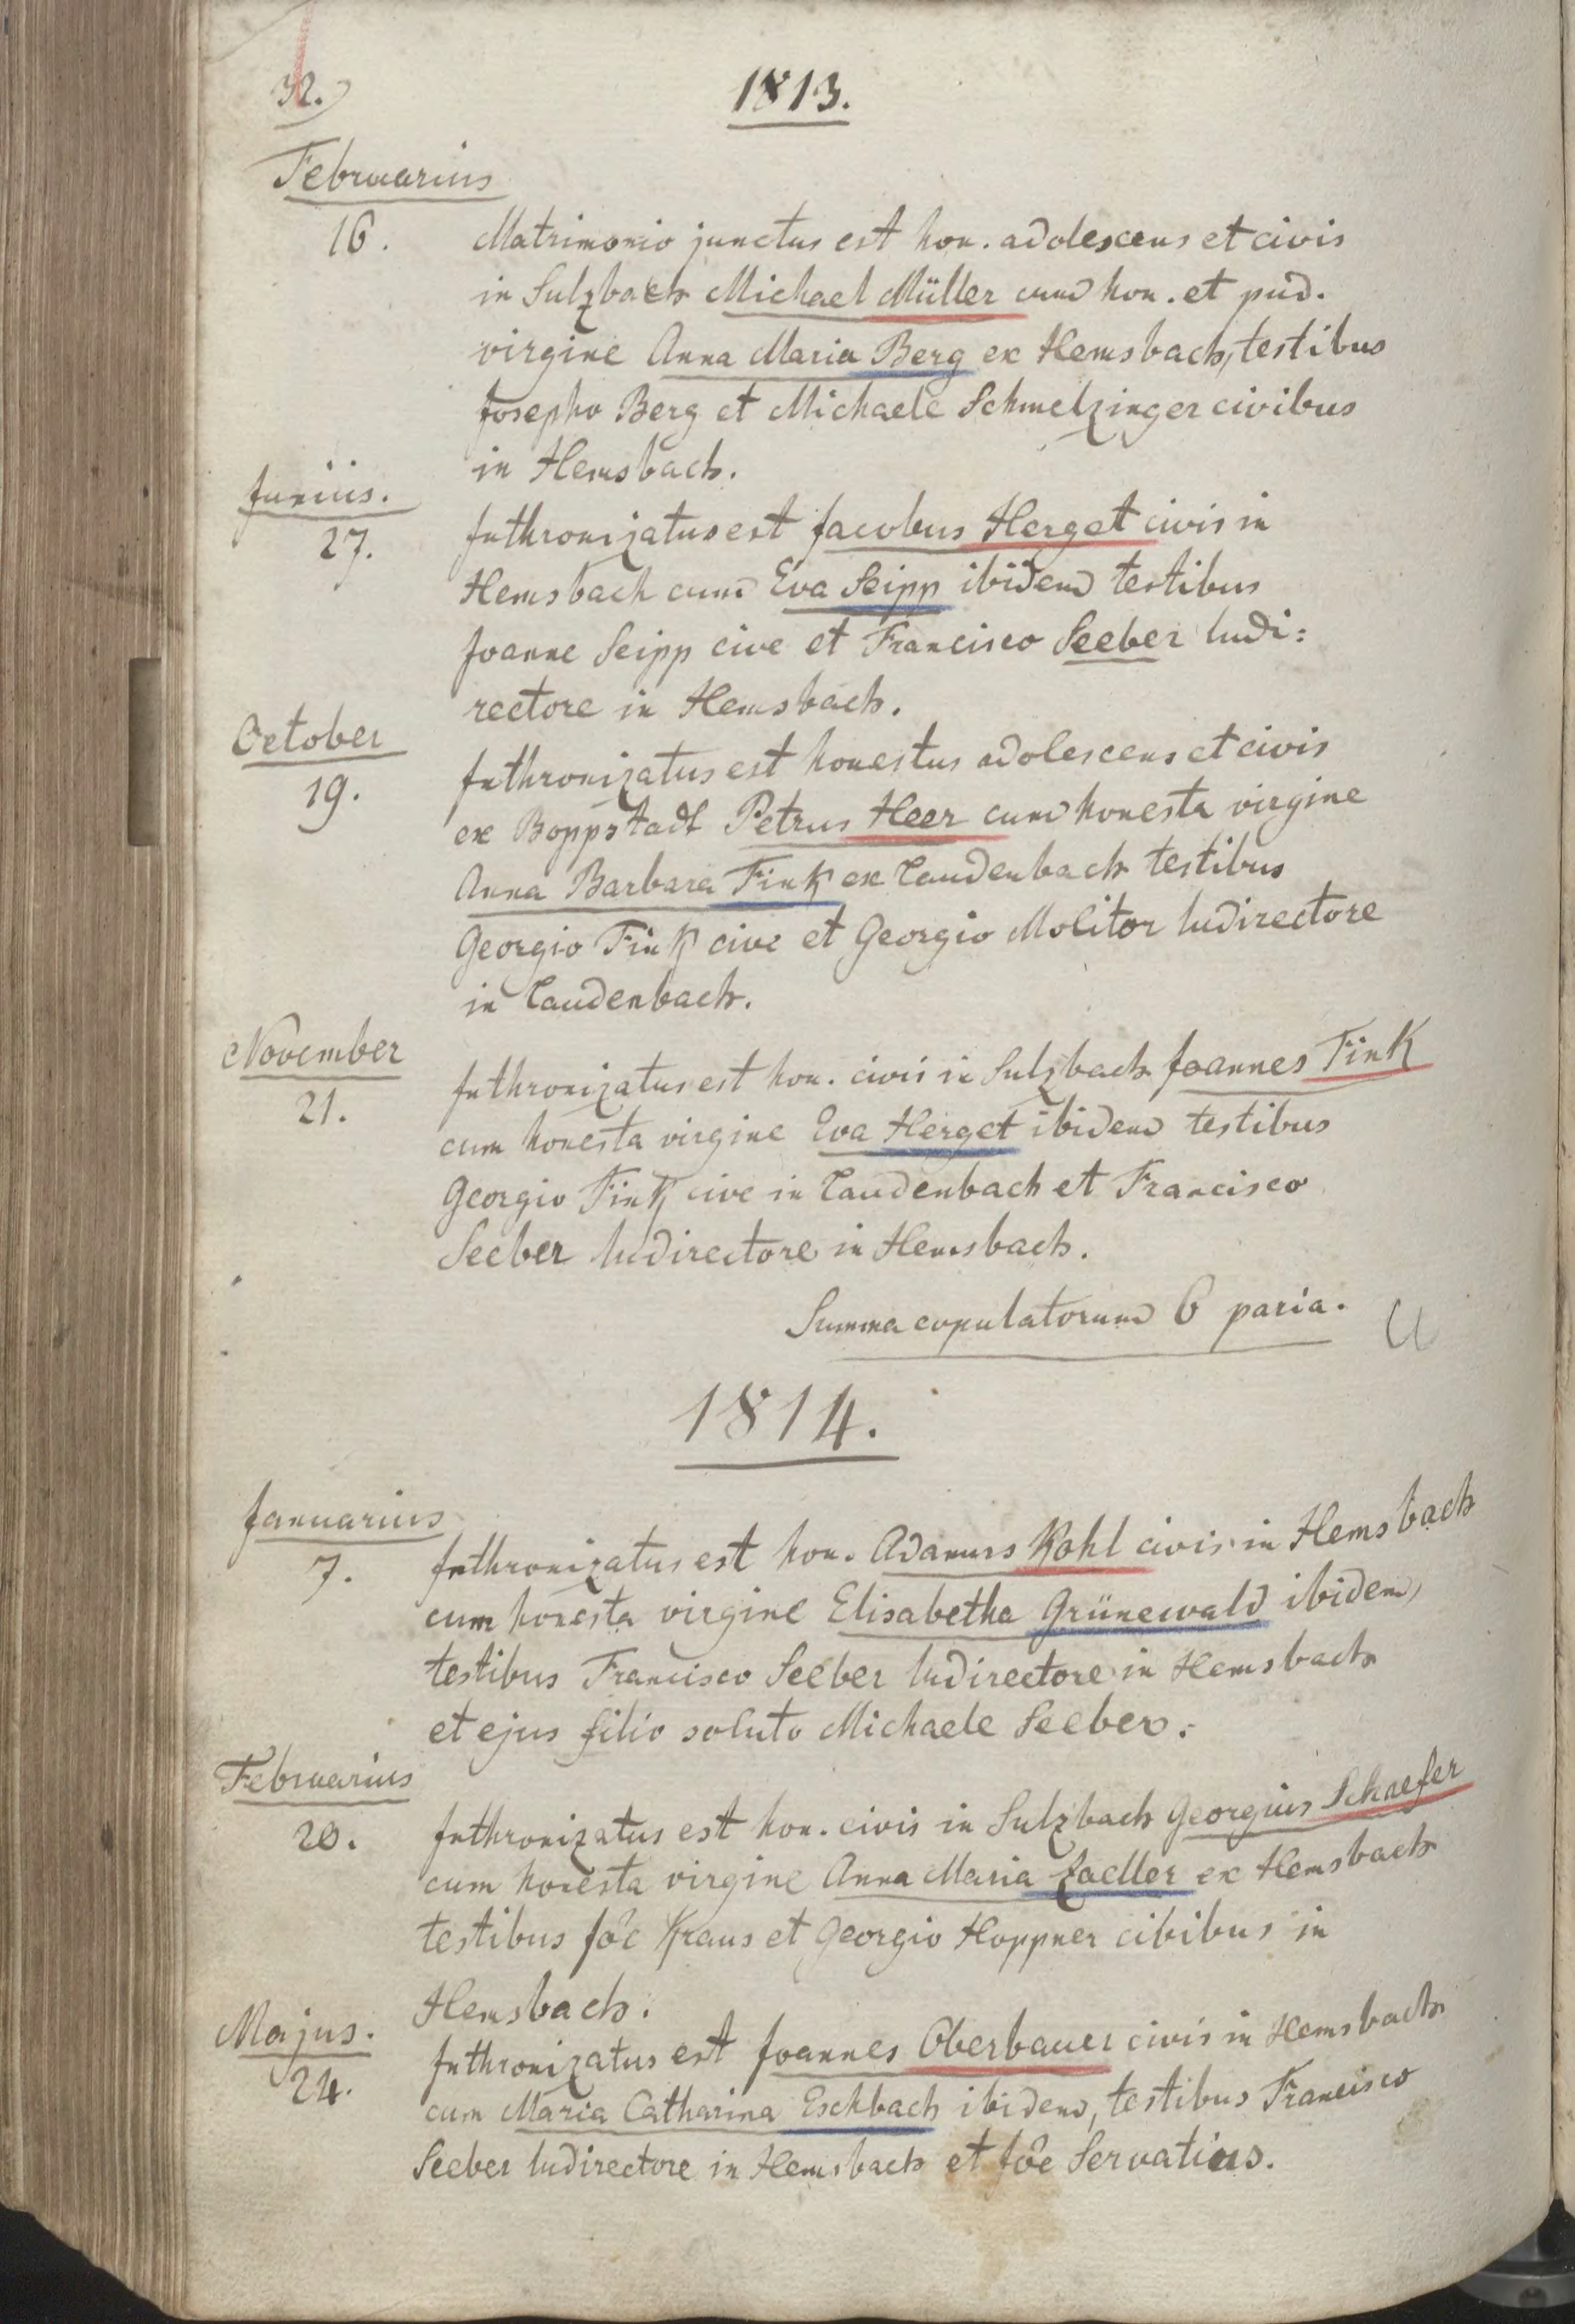 32.)
1813.
Februarius
16.
Matrimonio junctus est hon. adolescens et civis
in Sulzbach Michael Müller cum hon. et pud.
virgine Anna Maria Berg ex Hemsbach, testibus
Josepho Berg et Michaele Schmelzinger civibus
in Hemsbach.
Junius.
27.
Inthronizatus est Jacobus Herget civis in
Hemsbach cum Eva Seipp ibidem testibus
Joanne Seipp cive et Francisco Seeber ludi:
rectore in Hemsbach.
October
19.
Inthronizatus est honestus adolescens et civis
ex Boppstadt Petrus Heer cum honesta virgine
Anna Barbara Fink ex Laudenbach testibus
Georgio Fink cive et Georgio Molitor ludirectore
in Laudenbach.
November
21.
Inthronizatus est hon. civis in Sulzbach Joannes Fink
cum honesta virgine Eva Herget ibidem testibus
Georgio Fink cive in Laudenbach et Francisco
Seeber ludirectore in Hemsbach.
Summa copulatorum 6 paria.
1814.
Januarius
7.
Inthronizatus est hon. Adamus Kohl civis in Hemsbach
cum honesta virgine Elisabetha Grünewald ibidem,
testibus Francisco Seeber ludirectore in Hemsbach
et ejus filio soluto Michaele Seeber.
Februarius
20.
Inthronizatus est hon. civis in Sulzbach Georgius Schaefer
cum honesta virgine Anna Maria Zaeller ex Hemsbach
testibus Joe Kraus et Georgio Hoppner cibibus in
Hemsbach.
Majus.
24.
Inthronizatus est Joannes Oberbauer civis in Hemsbach
cum Maria Catharina Eschbach ibidem, testibus Francisco
Seeber ludirectore in Hemsbach et Joe Servatius.